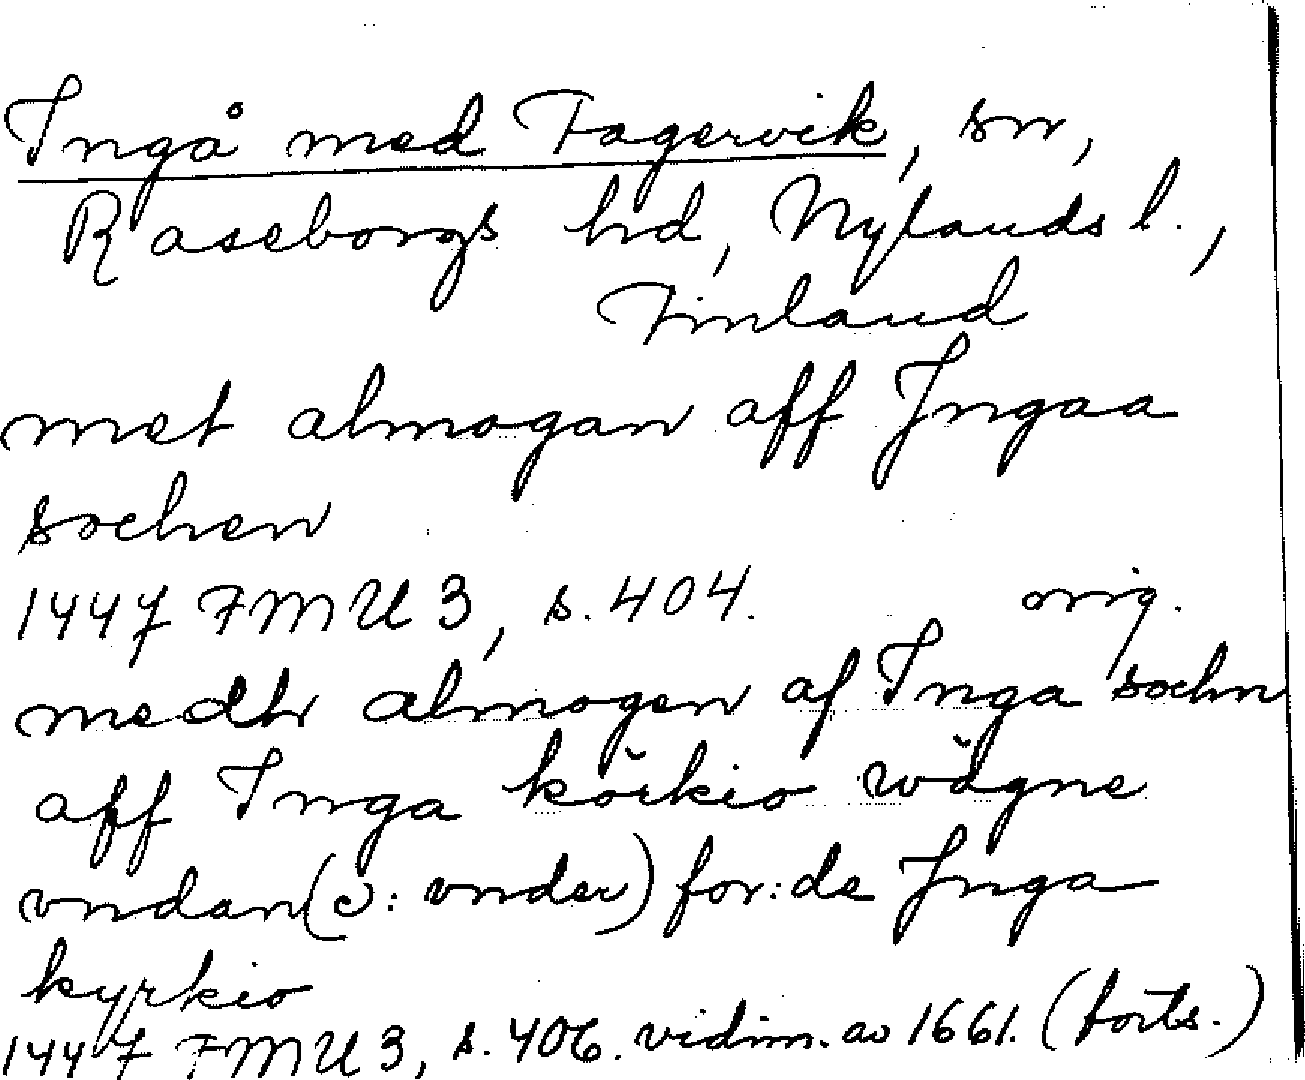 Ingå med Fagervik, sn,
Raseborgs hd, Nylands l.,
Finland
met almogan aff Jngaa
sochen
1447 FMU 3, s. 404. orig.
medh almogen af Inga sochn
aff Inga körkio wägne
vndan (ɔ: vnder) for:de Jnga
kyrkio
1447 FMU 3, s. 406. vidim. av 1661. (forts.)